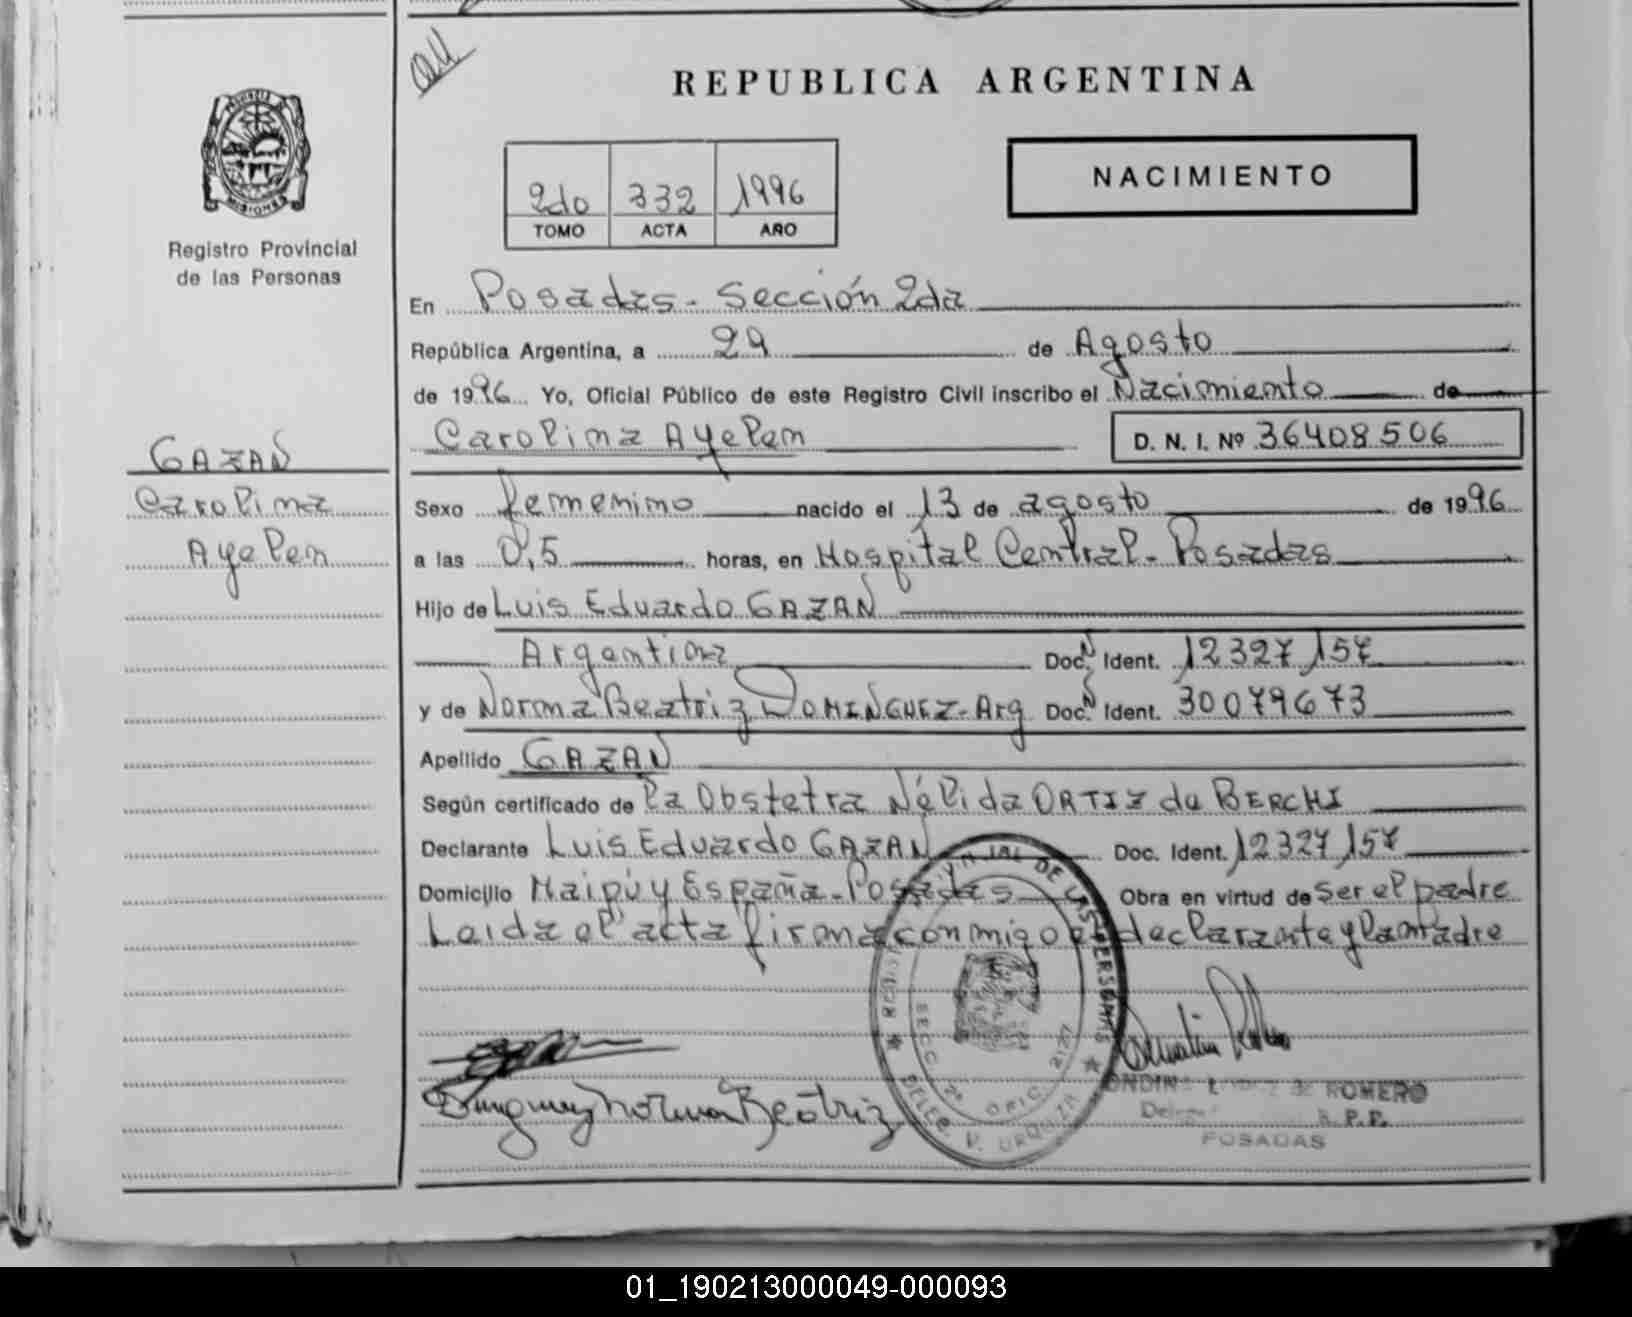 REPUBLICA ARGENTINA
NACIMIENTO
2do 332 1996
TOMO ACTA AÑO
MISIONES
Registro Provincial
de las Personas
En Posadas - Sección 2da
República Argentina, a 29 de Agosto
de 1996 Yo, Oficial Público de este Registro Civil inscribo el Nacimiento de
Carolina Ayelen D. N. I. Nº 36408506
GAZAN
Carolina
Ayelen
Sexo femenino nacido el 13 de agosto de 1996
a las 0,5 horas, en Hospital Central - Posadas
Hijo de Luis Eduardo GAZAN
Argentina Doc. N Ident. 12327157
y de Norma Beatriz DOMINGUEZ - Arg Doc. N Ident. 30079673
Apellido GAZAN
Según certificado de la Obstetra Nélida ORTIZ de BERCHI
Declarante Luis Eduardo GAZAN Doc. Ident. 12327157
Domicilio Maipú y España - Posadas Obra en virtud de ser el padre
Leida el acta firma conmigo el declarante y la madre
DE LAS PERSONAS
SECC. 2ª OFIC. 2127
DELEG. V. URQUIZA
Norma Beatriz
DE ROMERO
R.P.P.
POSADAS
01_190213000049-000093